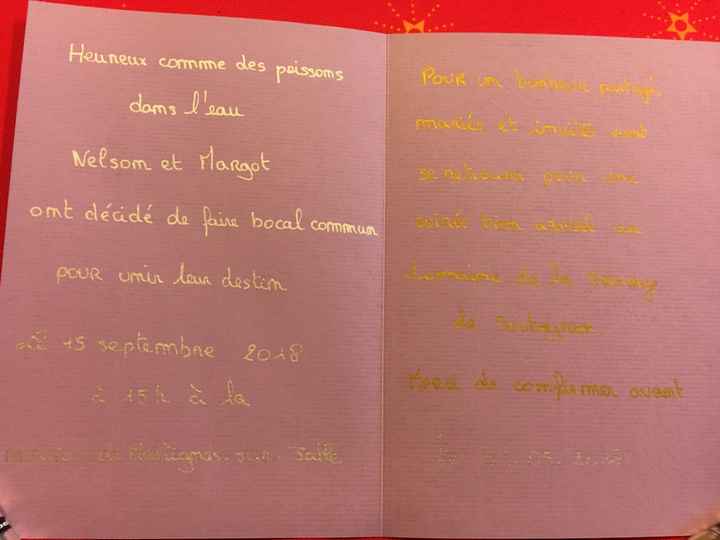 Heureux comme des poissons
dans l'eau
Nelson et Margot
ont décidé de faire bocal commun
pour unir leur destin
Le 15 septembre 2018
à 15h à la
sur
Pour un bonheur partagé
mariés et invités vont
se retrouver pour une
soirée bien au
Domaine de la
de
Merci de confirmer avant